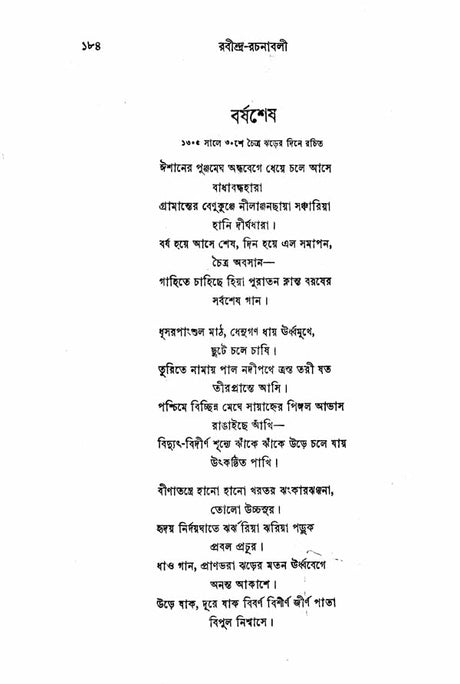 ১৮৪
রবীন্দ্র-রচনাবলী
বর্ষশেষ
১৩০৫ সালে ৩০শে চৈত্র ঝড়ের দিনে রচিত
ঈশানের পুঞ্জমেঘ অন্ধবেগে ধেয়ে চলে আসে
বাধাবন্ধহারা
গ্রামান্তের বেণুকুঞ্জে নীলাঞ্জনছায়া সঞ্চারিয়া
হানি দীর্ঘধারা।
বর্ষ হয়ে আসে শেষ, দিন হয়ে এল সমাপন,
চৈত্র অবসান—
গাহিতে চাহিছে হিয়া পুরাতন ক্লান্ত বরষের
সর্বশেষ গান।
ধূসরপাংশুল মাঠ, ধেনুগণ ধায় ঊর্ধ্বমুখে,
ছুটে চলে চাষি।
তুরিতে নামায় পাল নদীপথে ত্রস্ত তরী যত
তীরপ্রান্তে আসি।
পশ্চিমে বিচ্ছিন্ন মেঘে সায়াহ্নের পিঙ্গল আভাস
রাঙাইছে আঁখি—
বিদ্যুৎ-বিদীর্ণ শূন্যে ঝাঁকে ঝাঁকে উড়ে চলে যায়
উৎকণ্ঠিত পাখি।
বীণাতন্ত্রে হানো হানো খরতর ঝংকারঝঞ্ঝনা,
তোলো উচ্চসুর।
হৃদয় নির্দয়ঘাতে ঝর্ঝরিয়া ঝরিয়া পড়ুক
প্রবল প্রচুর।
ধাও গান, প্রাণভরা ঝড়ের মতন ঊর্ধ্ববেগে
অনন্ত আকাশে।
উড়ে যাক, দূরে যাক বিবর্ণ বিশীর্ণ জীর্ণ পাতা
বিপুল নিশ্বাসে।